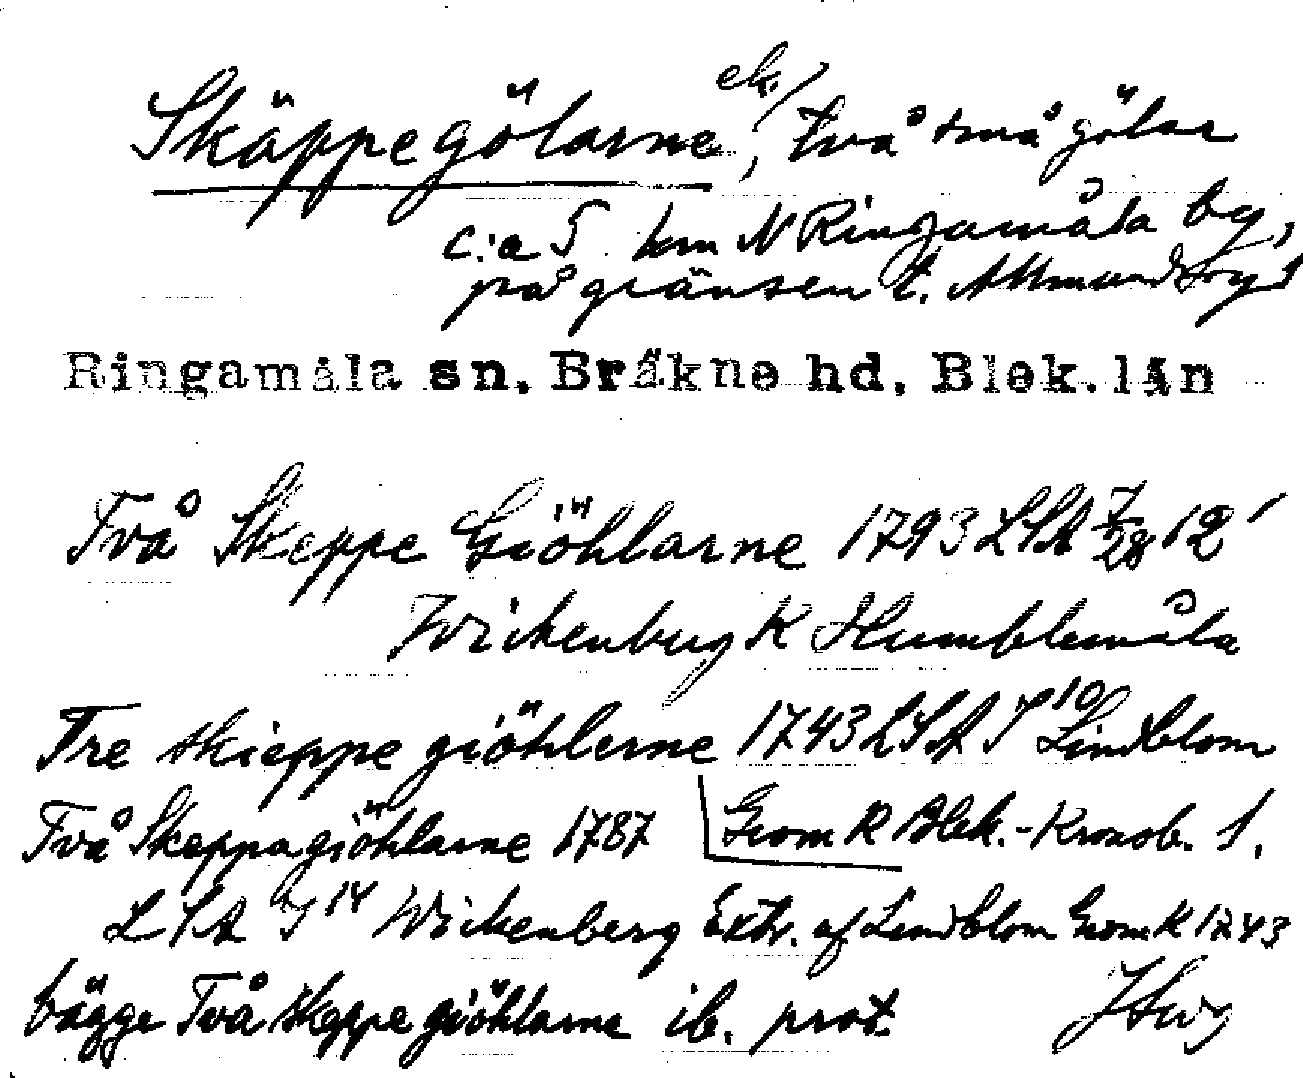 Skäppegölarne ek., två små gölar
c:a 5 km N Ringamåla by,
på gränsen t. Allmundsryd
Ringamåla sn. Bräkne hd. Blek. län
Två Skeppe Giöhlarne 1793 LSA 7/28 12'
Wickenberg K Humblemåla
Tre skieppe giöhlerne 1743 LSA I 10 Lindblom
Två Skeppagiöhlarne 1787 Geom K Blek.-Kronob. l.
LSA I 14 Wickenberg Extr. af Lindblom Geom K 1743
bägge Två skeppe giöhlarne ib. prot.